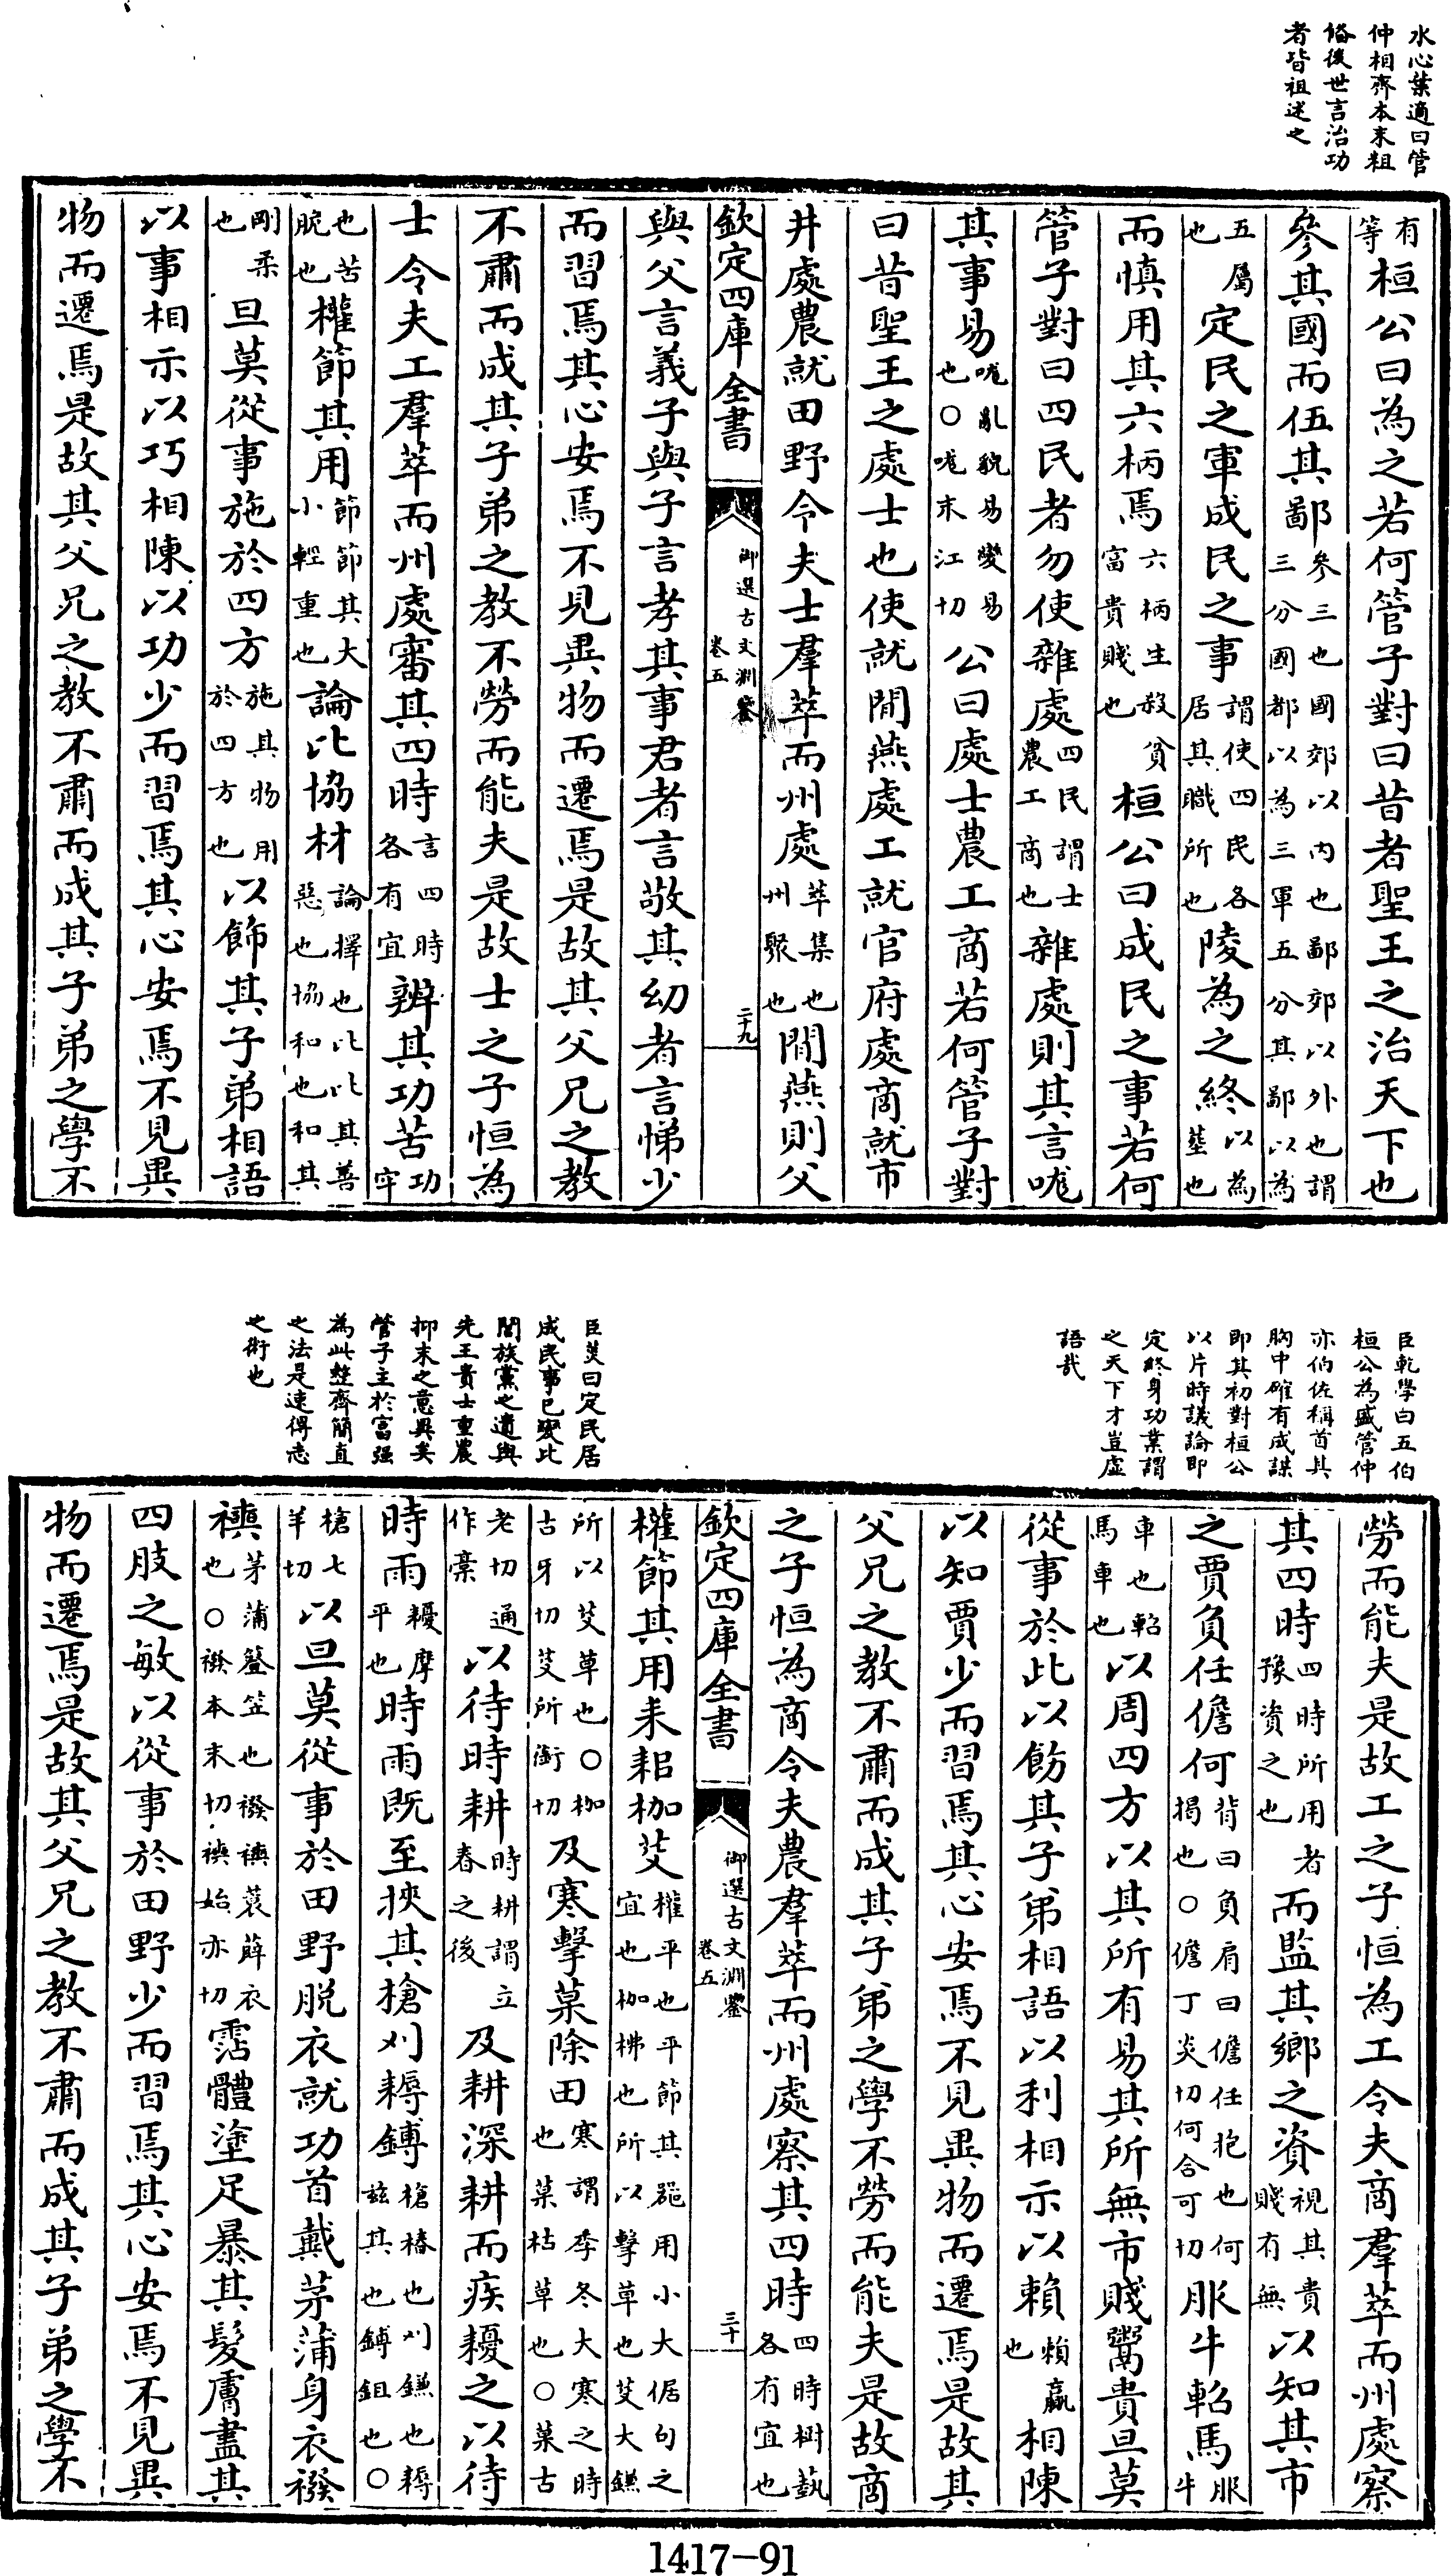 水心葉適曰管
仲相齊本末粗
俻後世言治功
者皆祖述之
有等桓公曰為之若何管子對曰昔者聖王之治天下也
參其國而伍其鄙參三也國郊以内也鄙郊以外也謂三分國都以為三軍五分其鄙以為
五屬也定民之軍成民之事謂使四民各居其職所也陵為之終以為葬也
而慎用其六柄焉六柄生殺貧富貴賤也桓公曰成民之事若何
管子對曰四民者勿使雜處四民謂士農工商也雜處則其言哤
其事易哤亂貌易變易也○哤末江切公曰處士農工商若何管子對
曰昔聖王之處士也使就閒燕處工就官府處商就市
井處農就田野令夫士羣萃而州處萃集也州聚也閒燕則父
欽定四庫全書
御選古文淵鑒
卷五
二十九
與父言義子與子言孝其事君者言敬其幼者言悌少
而習焉其心安焉不見異物而遷焉是故其父兄之教
不肅而成其子弟之教不勞而能夫是故士之子恒為
士令夫工羣萃而州處審其四時言四時各有宜辨其功苦功牢
也苦脆也權節其用節節其大小輕重也論比協材論擇也比比其善惡也協和也和其
剛柔也旦莫從事施於四方施其物用於四方也以飾其子弟相語
以事相示以巧相陳以功少而習焉其心安焉不見異
物而遷焉是故其父兄之教不肅而成其子弟之學不
臣乾學曰五伯
桓公為盛管仲
亦伯佐稱首其
胸中確有成謀
即其初對桓公
以片時議論即
定終身功業謂
之天下才豈虛
語哉
臣英曰定民居
成民事已變比
閭族黨之遺與
先王貴士重農
抑末之意異矣
管子主於富强
為此整齊簡直
之法是速得志
之術也
勞而能夫是故工之子恒為工令夫商羣萃而州處察
其四時四時所用者豫資之也而監其鄉之資視其貴賤有無以知其市
之賈負任儋何背曰負肩曰儋任抱也何揭也○儋丁炎切何合可切服牛軺馬服牛
車也軺馬車也以周四方以其所有易其所無市賤鬻貴旦莫
從事於此以飭其子弟相語以利相示以賴賴贏也相陳
以知賈少而習焉其心安焉不見異物而遷焉是故其
父兄之教不肅而成其子弟之學不勞而能夫是故商
之子恒為商令夫農羣萃而州處察其四時四時樹藝各有宜也
欽定四庫全書
御選古文淵鑒
卷五
三十
權節其用耒耜枷芟權平也平節其器用小大倨句之宜也枷柫也所以擊草也芟大鎌
所以芟草也○枷古牙切芟所銜切及寒擊菒除田寒謂季冬大寒之時也菒枯草也○菒古
老切通作藁以待時耕時耕謂立春之後及耕深耕而疾耰之以待
時雨耰摩平也時雨既至挾其槍刈耨鎛槍樁也刈鎌也耨玆其也鎛鉏也○
槍七羊切以旦莫從事於田野脫衣就功首戴茅蒲身衣襏
襫茅蒲簦笠也襏襫蓑薜衣也○襏本末切襫始亦切霑體塗足暴其髮膚盡其
四肢之敏以從事於田野少而習焉其心安焉不見異
物而遷焉是故其父兄之教不肅而成其子弟之學不
1417-91